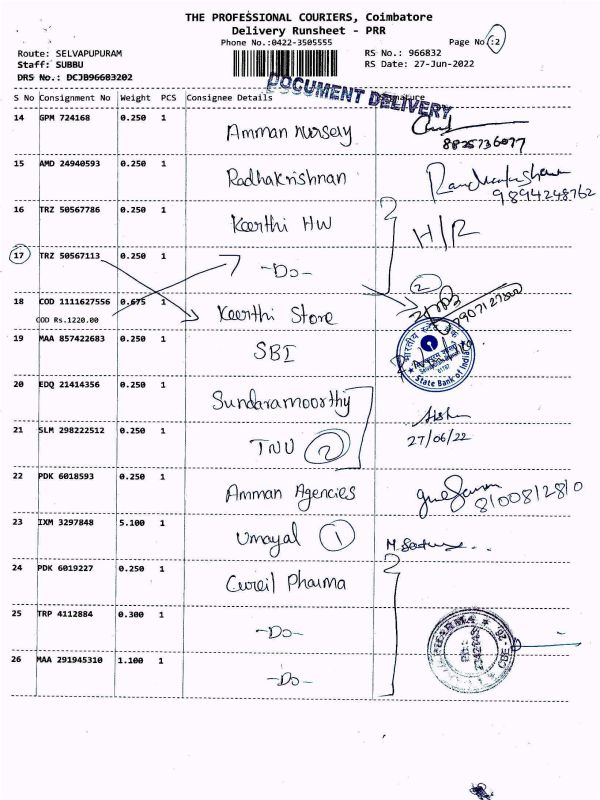 THE PROFESSIONAL COURIERS, Coimbatore
Delivery Runsheet - PRR
Phone No.:0422-3505555
Page No.:2
Route: SELVAPUPURAM
Staff: SUBBU
DRS No.: DCJB96683202
RS No.: 966832
RS Date: 27-Jun-2022
DOCUMENT DELIVERY
S No Consignment No Weight PCS Consignee Details Signature
14 GPM 724168 0.250 1 Amman Nursery
8825736077
15 AMD 24940593 0.250 1 Radhakrishnan
9894248762
16 TRZ 50567786 0.250 1 Keerthi HW H/R
17 TRZ 50567113 0.250 1 -Do-
2
18 COD 1111627556 0.675 1 Keerthi Store
COD Rs.1220.00
19 MAA 857422683 0.250 1 SBI
भारतीय स्टेट बैंक
State Bank of India
20 EDQ 21414356 0.250 1 Sundaramoorthy
21 SLM 298222512 0.250 1 TNU 2 27/06/22
22 PDK 6018593 0.250 1 Amman Agencies
8100812810
23 IXM 3297848 5.100 1 Umayal 1
24 PDK 6019227 0.250 1 Cureil Pharma
25 TRP 4112884 0.300 1 -Do-
26 MAA 291945310 1.100 1 -Do-
PHARMA
CBE